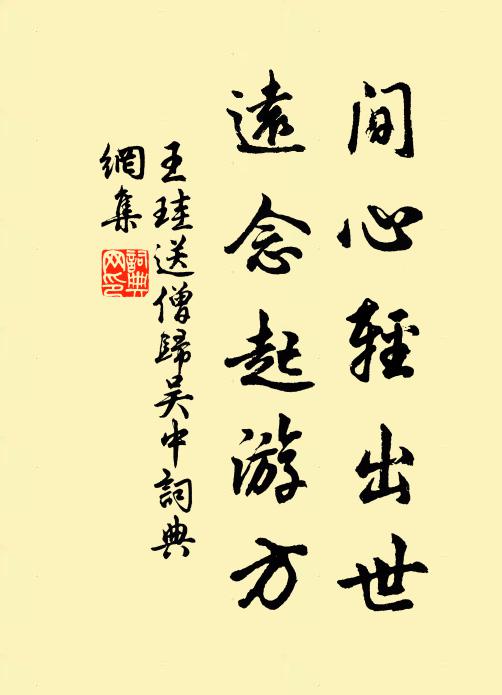 間心輕出世
遠念起游方
王珪送僧歸吴中詞典
網集
詞典
网印